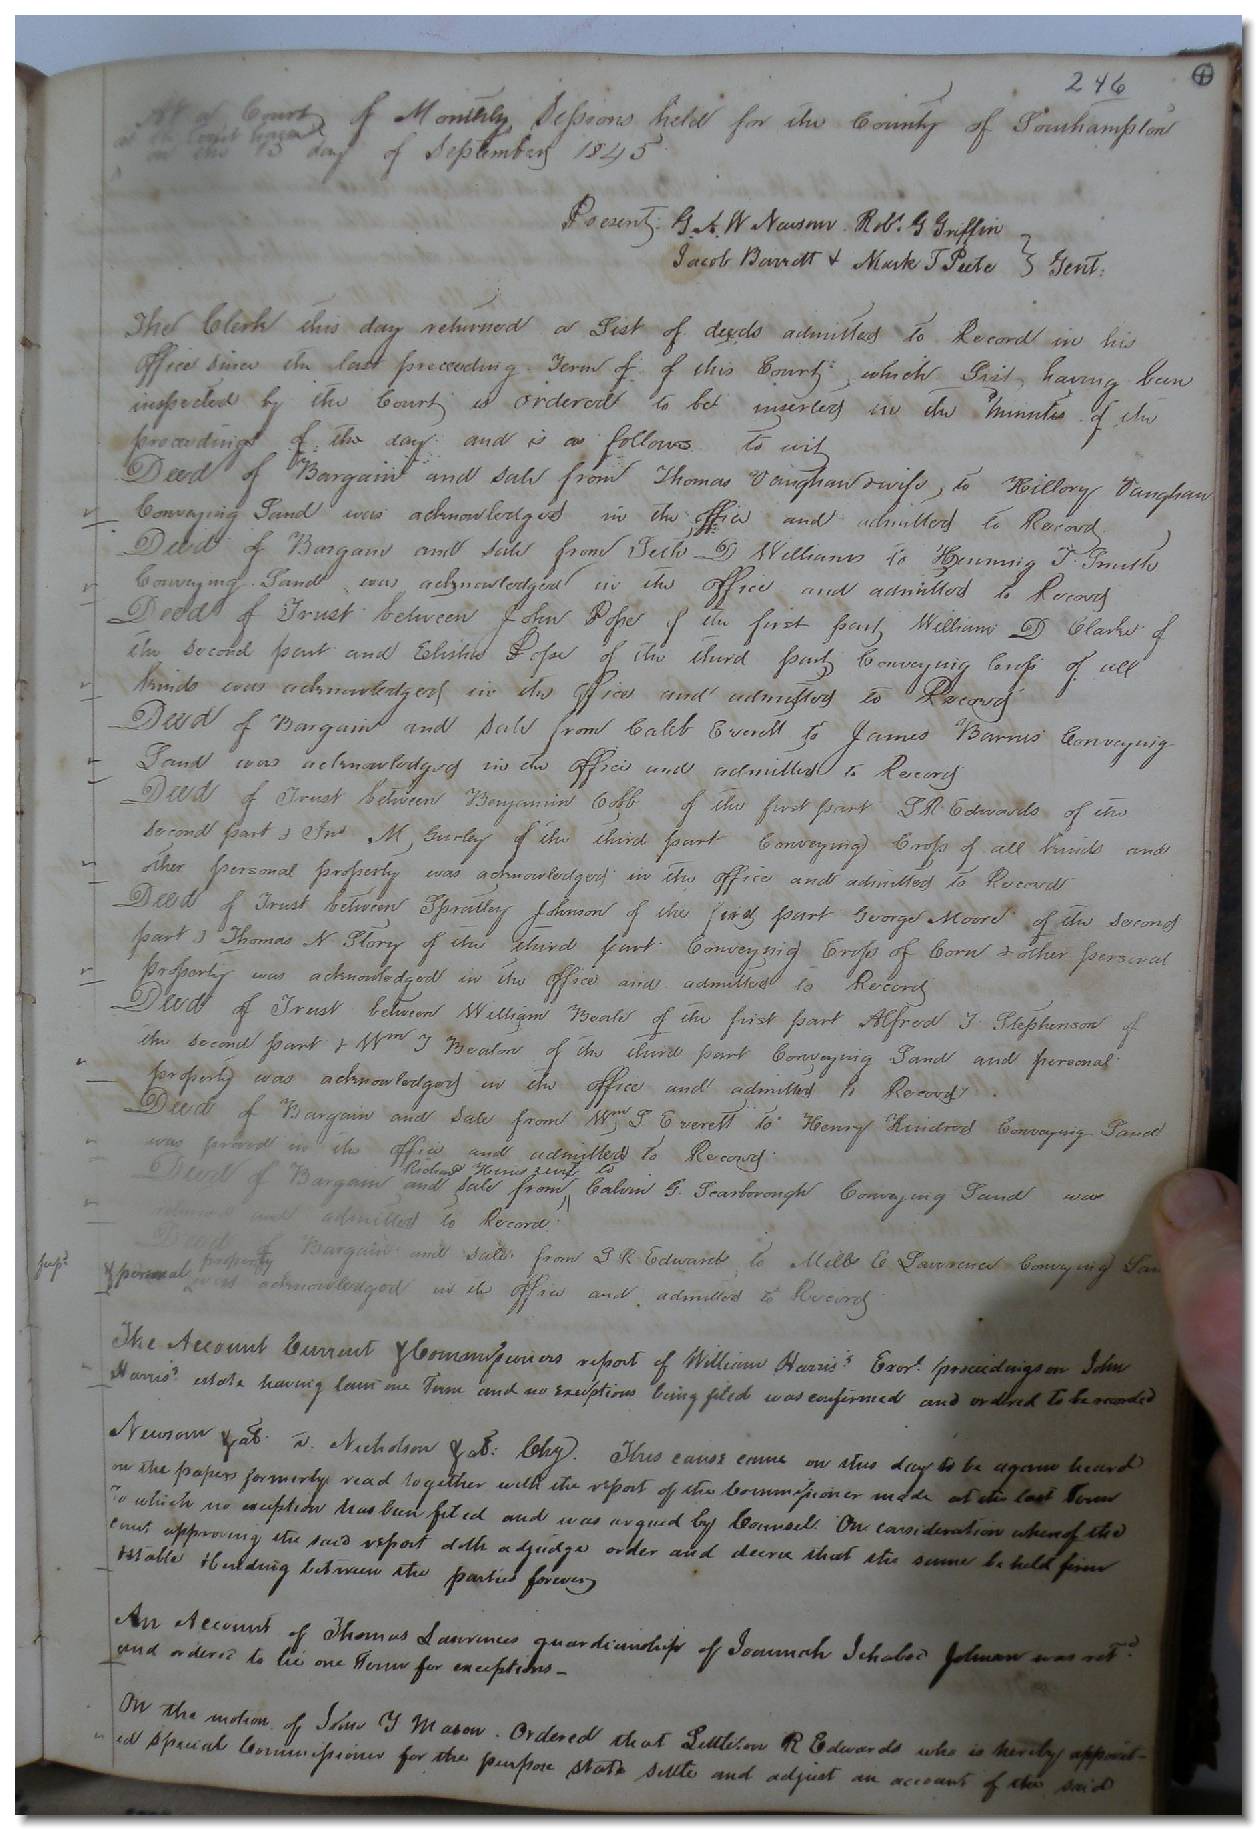 246
At a Court of Monthly Sessions held for the County of Southampton
at the Court house
on the 15 day of September 1845
Present: G. A. W Newsom. Robt. G Griffin
Jacob Barrett & Mark T Peete } Gent:
The Clerk this day returned a List of deeds admitted to Record in his
Office since the last preceeding Term of of this Court: which List, having been
inspected by the Court is ordered to be inserted in the Minutes of the
proceedings of the day and is as follows to wit
Deed of Bargain and sale from Thomas Vaughan & wife, to Hillory Vaughan
Conveying Land was acknowledged in the office and admitted to Record
Deed of Bargain and sale from Seth D Williams to T. Smith
Conveying Land was acknowledged in the office and admitted to Record
Deed of Trust between John Pope of the first part, William D Clarke of
the second part and Elisha Pope of the third part Conveying Crops of all
kinds was acknowledged in the office and admitted to Record
Deed of Bargain and sale from Caleb Everett to James Barnes Conveying
Land was acknowledged in the office and admitted to Record
Deed of Trust between Benjamin Cobb of the first part L R Edwards of the
second part & Jno M Gurley of the third part Conveying Crops of all kinds and
other personal property was acknowledged in the office and admitted to Record
Deed of Trust between Spratley Johnson of the first part George Moore of the second
part & Thomas N Story of the third part Conveying Crops of Corn & other personal
property was acknowledged in the office and admitted to Record
Deed of Trust between William Beale of the first part Alfred J Stephenson of
the second part & Wm J Beaton of the third part Conveying Land and personal
property was acknowledged in the office and admitted to Record.
Deed of Bargain and sale from Wm S Everett to Henry Kindred Conveying Land
was proved in the office and admitted to Record
& wife to
Deed of Bargain and sale from Calvin G. Scarborough Conveying Land was
returned and admitted to Record
Deed of Bargain and sale from L R Edwards to Mills E Lawrence Conveying Lan
& personal property was acknowledged in the office and admitted to Record
The Account Current & Commissioners report of William Harris's Exor. proceedings on John
Harris's estate having lain one Term and no exceptions being filed was confirmed and ordered to be recorded
Newsom & al: v. Nicholson & al: Chy. This cause came on this day to be again heard
on the papers formerly read together with the report of the Commissioner made at the last Term
To which no exception has been filed and was argued by Counsel. On consideration whereof the
court approving the said report doth adjudge order and decree that the same be held firm
& stable & binding between the parties forever
An Account of Thomas Lawrences guardianship of was retd
and ordered to lie one Term for exceptions -
On the motion of John Y Mason. Ordered that Littleton R Edwards who is hereby appoint-
ed Special Commissioner for the purpose state settle and adjust an account of the said